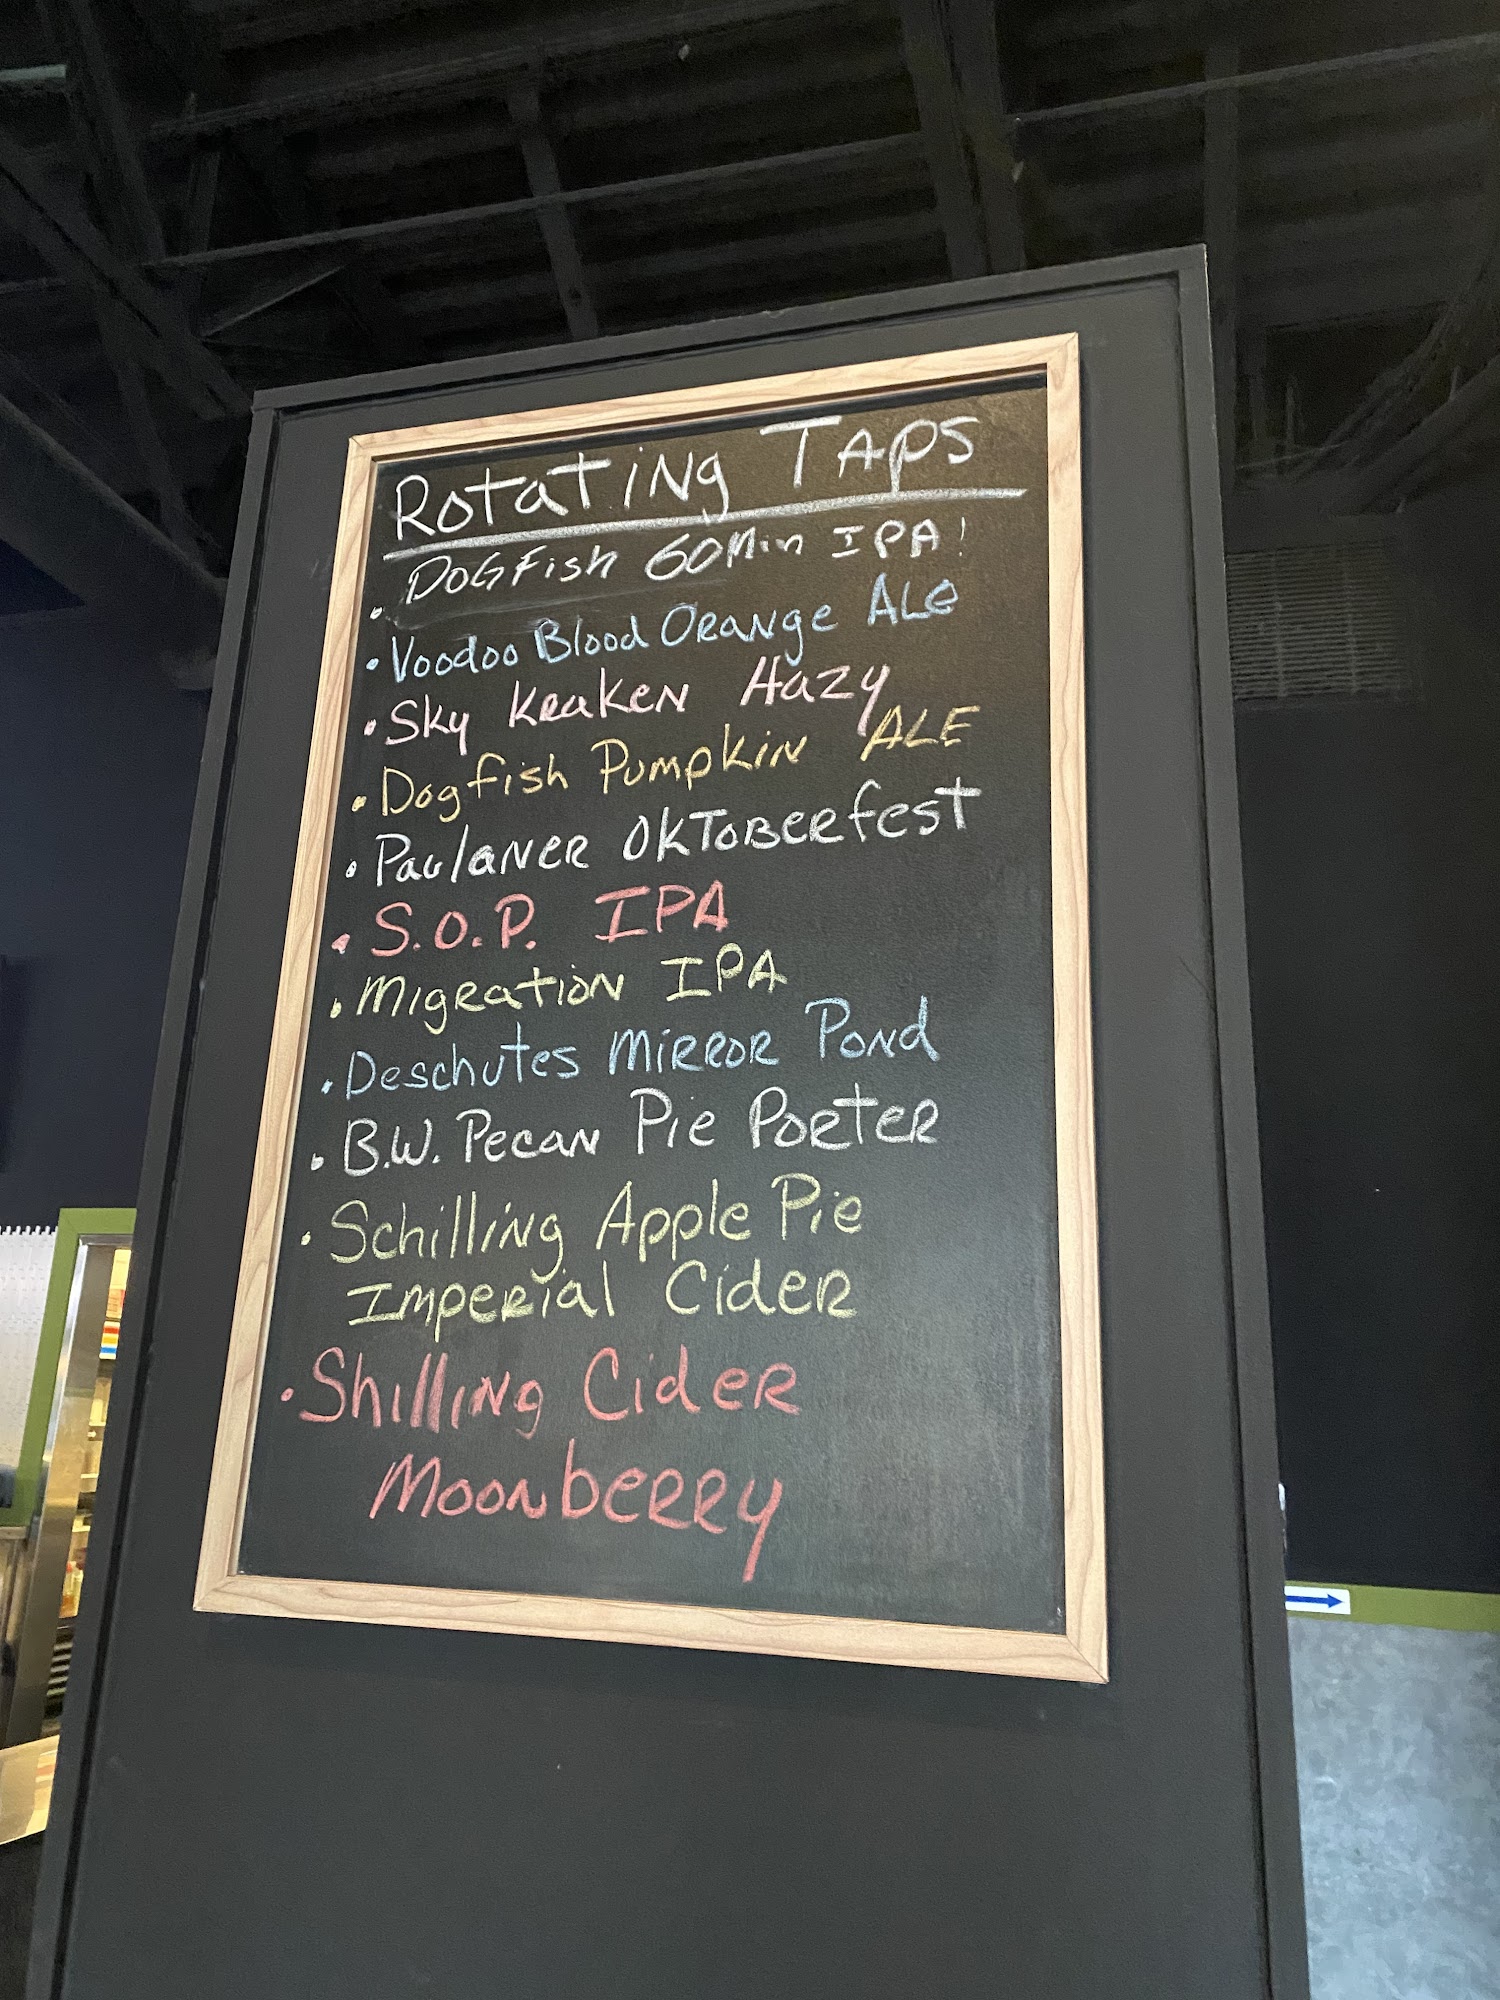 Rotating Taps
• Dogfish 60 Min IPA!
• Voodoo Blood Orange Ale
• Sky Kraken Hazy
• Dogfish Pumpkin ALE
• Paulaner Oktoberfest
• S.O.P. IPA
• Migration IPA
• Deschutes Mirror Pond
• B.W. Pecan Pie Porter
• Schilling Apple Pie
Imperial Cider
• Shilling Cider
Moonberry